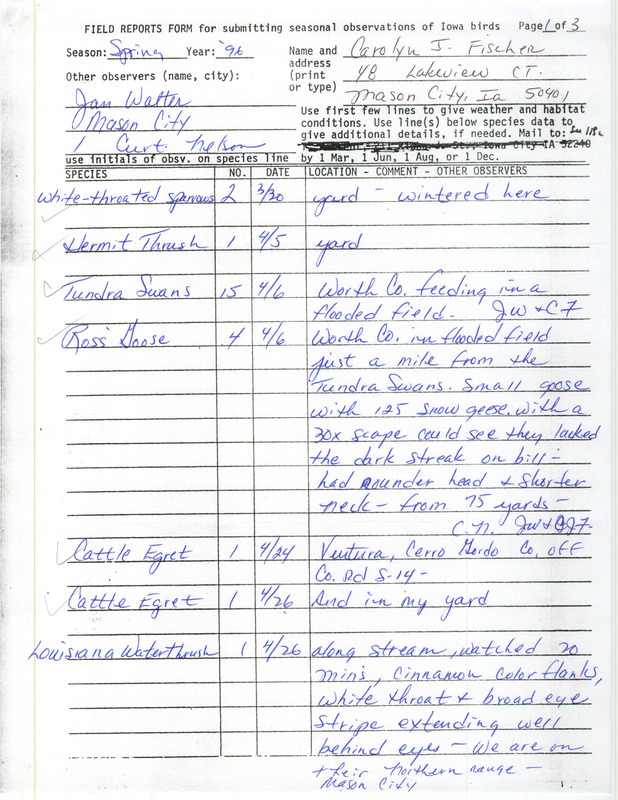 FIELD REPORTS FORM for submitting seasonal observations of Iowa birds Page 1 of 3
Season: Spring Year: '96 Name and Carolyn J. Fischer
address 48 Lakeview CT.
Other observers (name, city): (print
or type) Mason City, Ia 50401
Jan Walter
Mason City
Curt Nelson
Use first few lines to give weather and habitat
conditions. Use line(s) below species data to
give additional details, if needed. Mail to:
Iowa City IA 52240
use initials of obsv. on species line by 1 Mar, 1 Jun, 1 Aug, or 1 Dec.
SPECIES NO. DATE LOCATION - COMMENT - OTHER OBSERVERS
White-throated sparrows 2 3/30 yard - wintered here
Hermit Thrush 1 4/5 yard
Tundra Swans 15 4/6 Worth Co. feeding in a
flooded field - JW & CF
Ross' Goose 4 4/6 Worth Co. in flooded field
just a mile from the
Tundra Swans. Small goose
with 125 snow geese. with a
30x scope could see they lacked
the dark streak on bill -
had rounder head & shorter
neck - from 75 yards -
C.N. JW & CJF
Cattle Egret 1 4/24 Ventura, Cerro Gordo Co, off
Co. Rd S-14 -
Cattle Egret 1 4/26 And in my yard
Louisiana Waterthrush 1 4/26 along stream, watched 20
mins, cinnamon color flanks,
white throat & broad eye
stripe extending well
behind eyes - We are on
their northern range -
Mason City